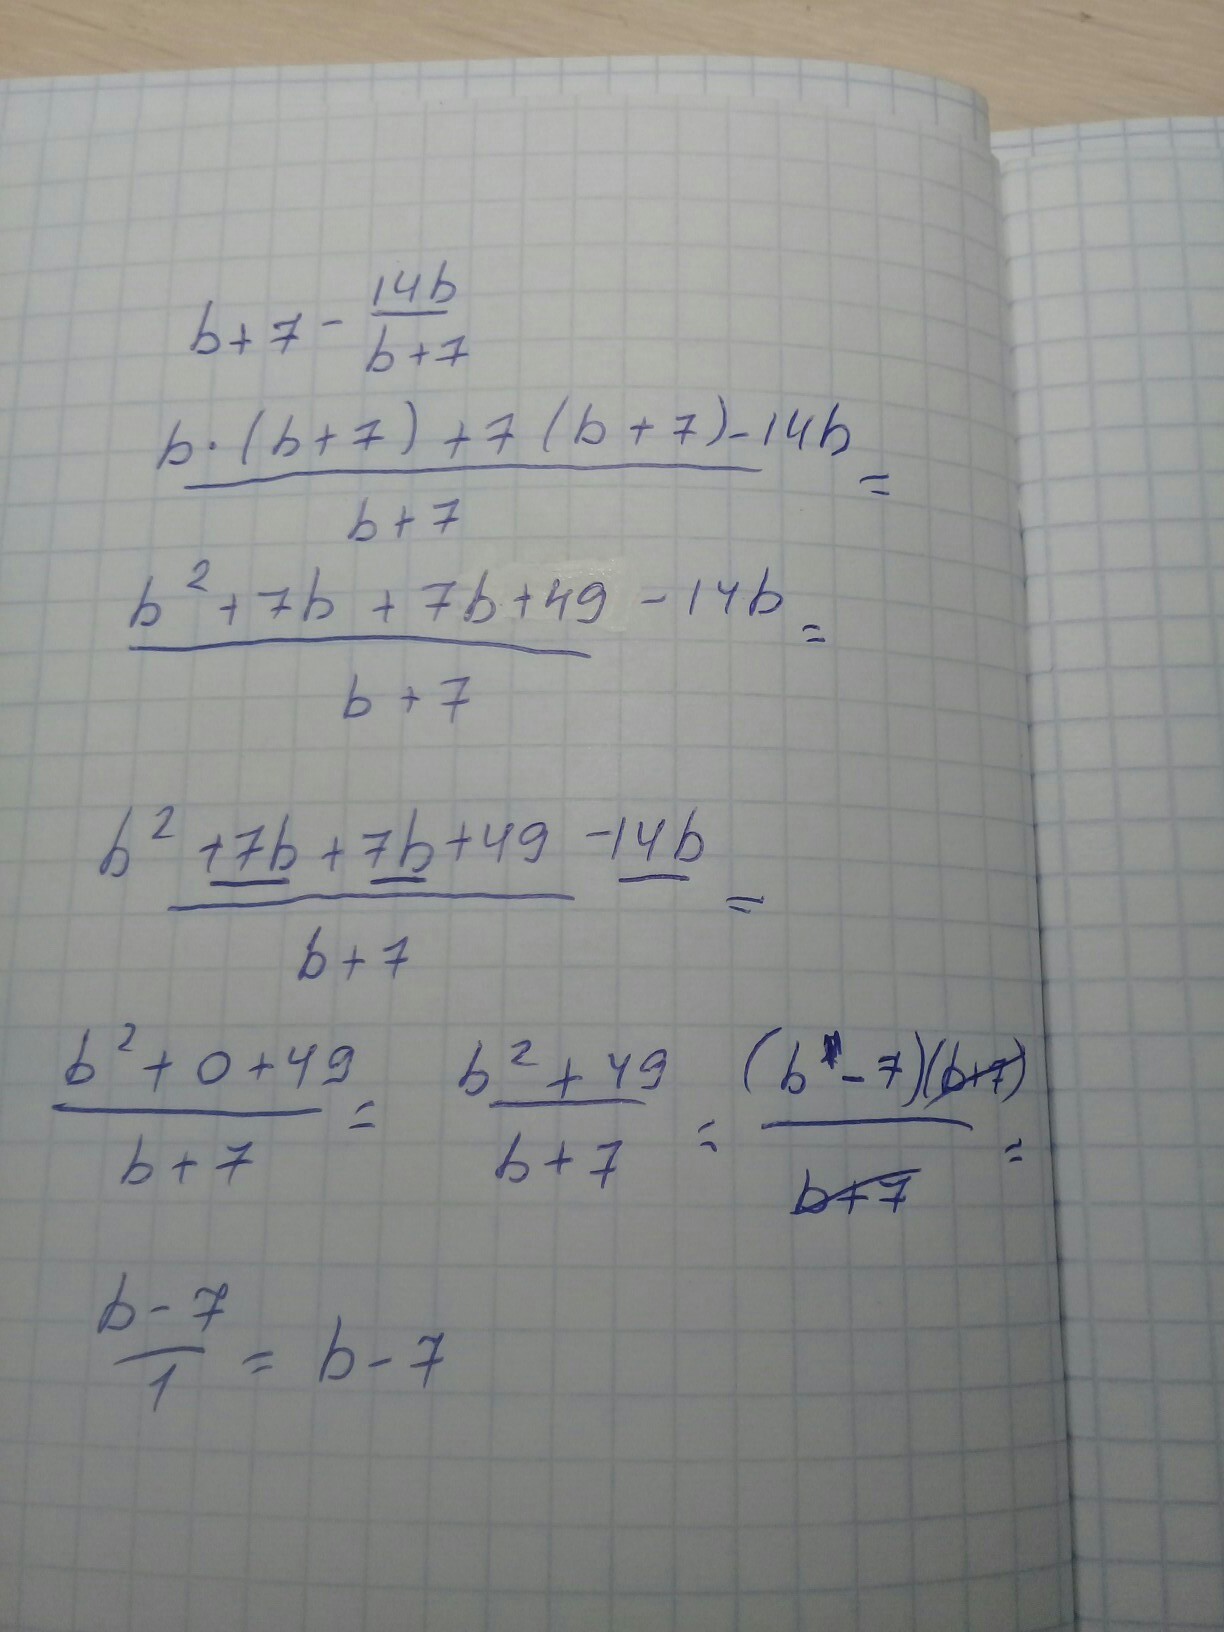 b+7 - 14b/b+7
b·(b+7)+7(b+7)-14b/b+7 =
b²+7b+7b+49-14b/b+7 =
b²+7b+7b+49-14b/b+7 =
b²+0+49/b+7 = b²+49/b+7 = (b-7)(b+7)/b+7 =
b-7/1 = b-7